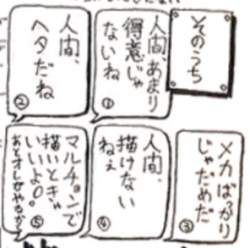 そのうち
人間、あまり
得意じゃ
ないね
①
人間、
ヘタだね
②
メカばっかり
じゃだめだ
③
人間、
描けない
ねぇ
④
マルチョンで
描いときゃ
いいよぉ。
⑤